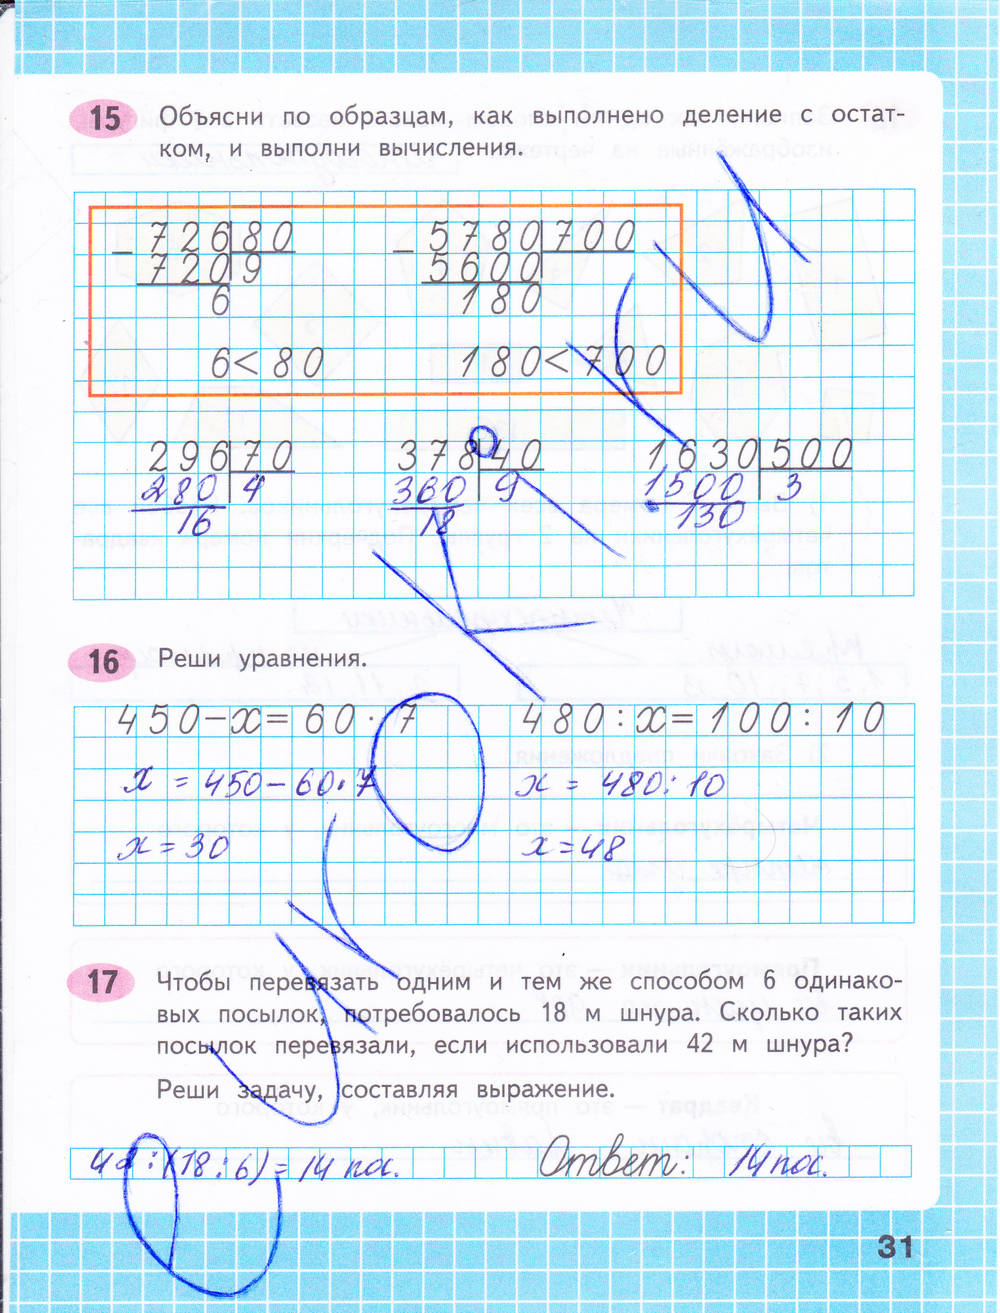 15 Объясни по образцам, как выполнено деление с остат-
ком, и выполни вычисления.
- 726 80 - 5780 700
720 9 5600
6 180
6 < 80 180 < 700
296 70 378 40 1630 500
280 4 360 9 1500 3
16 18 130
16 Реши уравнения.
450 - x = 60 · 7 480 : x = 100 : 10
x = 450 - 60 · 7 x = 480 : 10
x = 30 x = 48
17 Чтобы перевязать одним и тем же способом 6 одинако-
вых посылок, потребовалось 18 м шнура. Сколько таких
посылок перевязали, если использовали 42 м шнура?
Реши задачу, составляя выражение.
42 : (18 : 6) = 14 пос. Ответ: 14 пос.
31